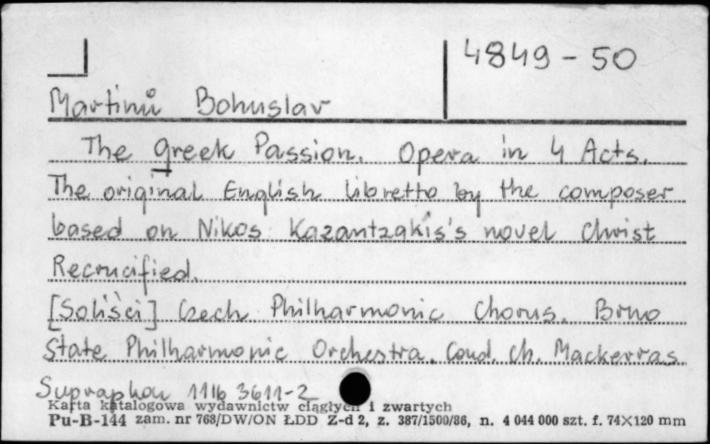 4849-50
Martinů Bohuslav
The Greek Passion. Opera in 4 Acts.
The original English libretto by the composer
based on Nikos Kazantzakis's novel Christ
Recrucified.
[Soliści] Czech Philharmonic Chorus. Brno
State Philharmonic Orchestra. Cond. Ch. Mackerras
Supraphon 1116 3611-2
Karta katalogowa wydawnictw ciągłych i zwartych
Pu-B-144 zam. nr 768/DW/ON ŁDD Z-d 2, z. 387/1500/86, n. 4 044 000 szt. f. 74×120 mm